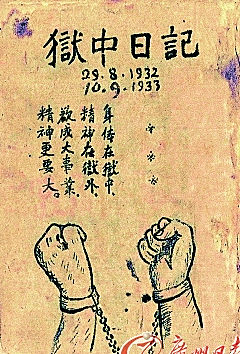 獄中日記
29.8.1932
10.9.1933
身体在獄中,
精神在獄外、
欲成大事業,
精神更要大。
广州日报